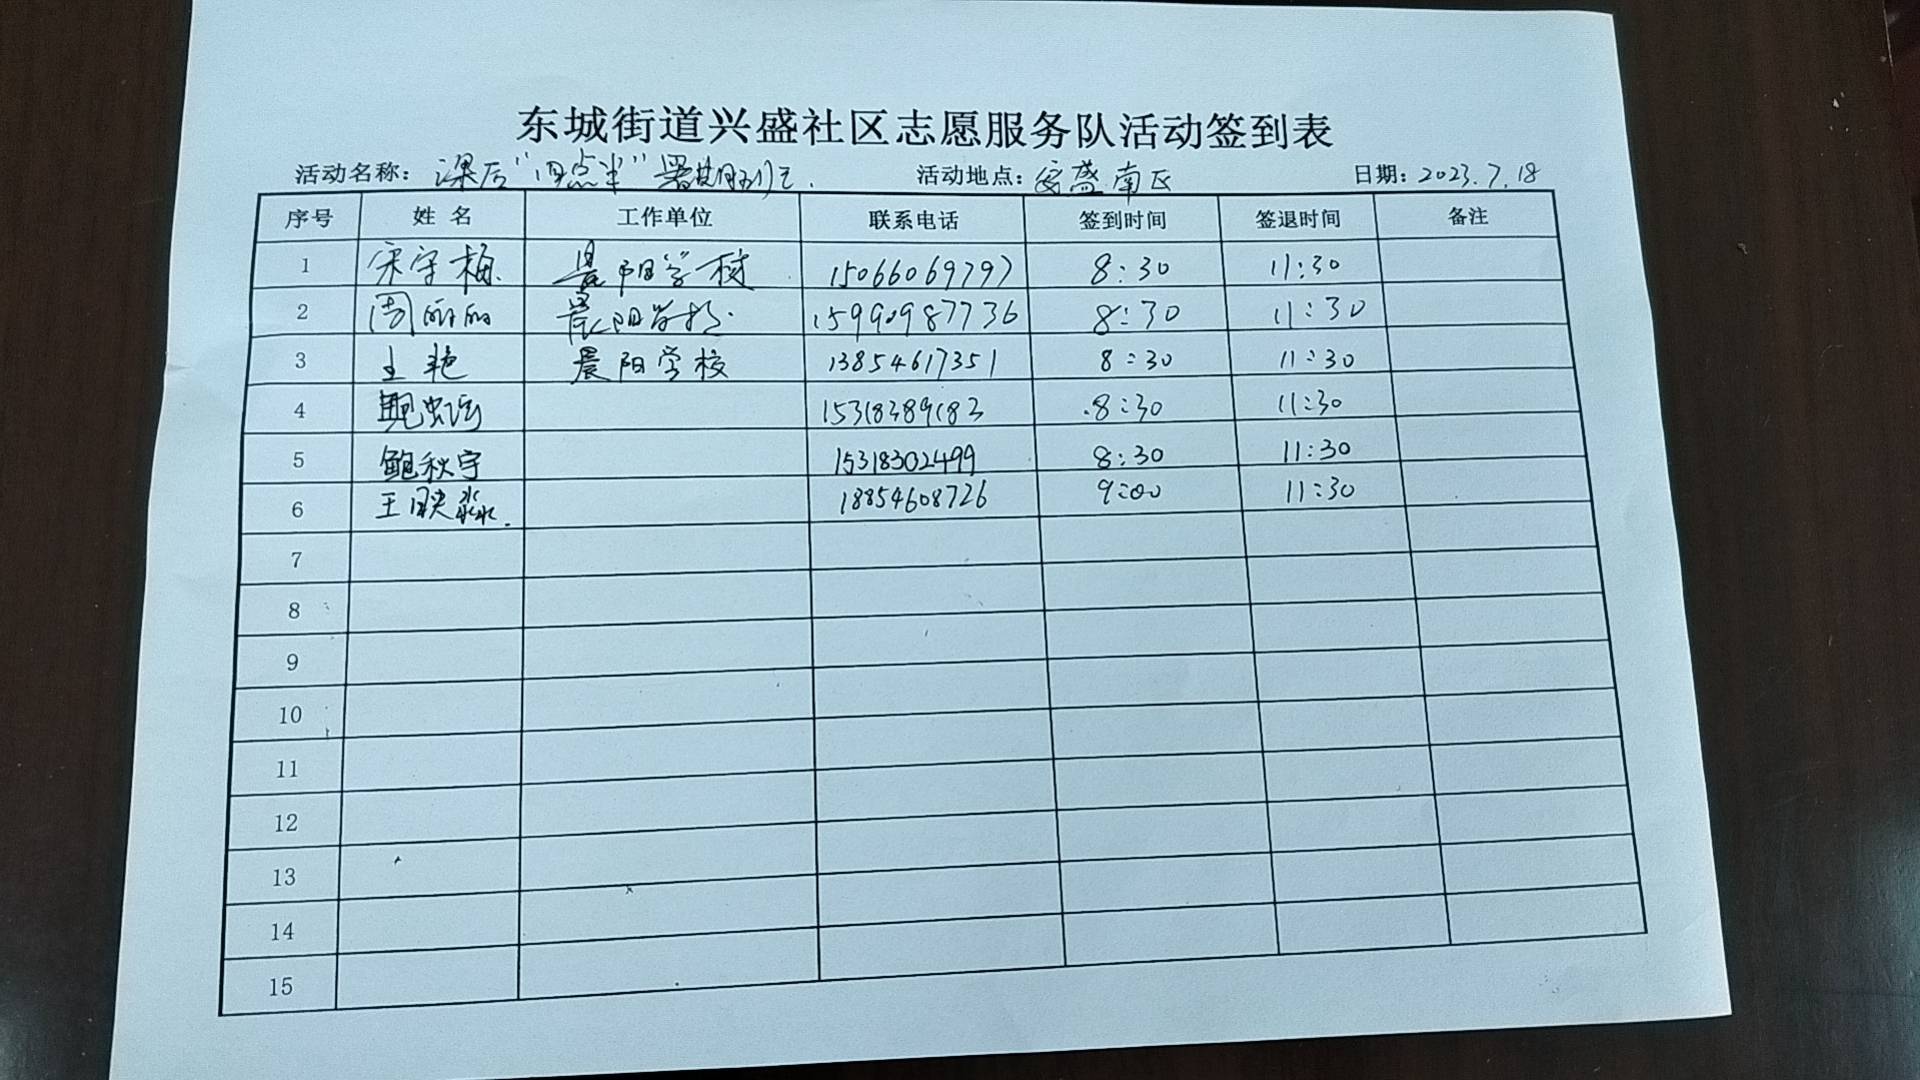 东城街道兴盛社区志愿服务队活动签到表
活动名称：课后“四点半”暑期 活动地点：安盛南区 日期：2023.7.18
序号 姓名 工作单位 联系电话 签到时间 签退时间 备注
1 宋守梅 晨阳学校 15066069797 8:30 11:30
2 周丽丽 晨阳学校 15990987736 8:30 11:30
3 王艳 晨阳学校 13854617351 8:30 11:30
4 15318389183 8:30 11:30
5 鲍秋宇 15318302499 8:30 11:30
6 王映淼 18854608726 9:00 11:30
7
8
9
10
11
12
13
14
15